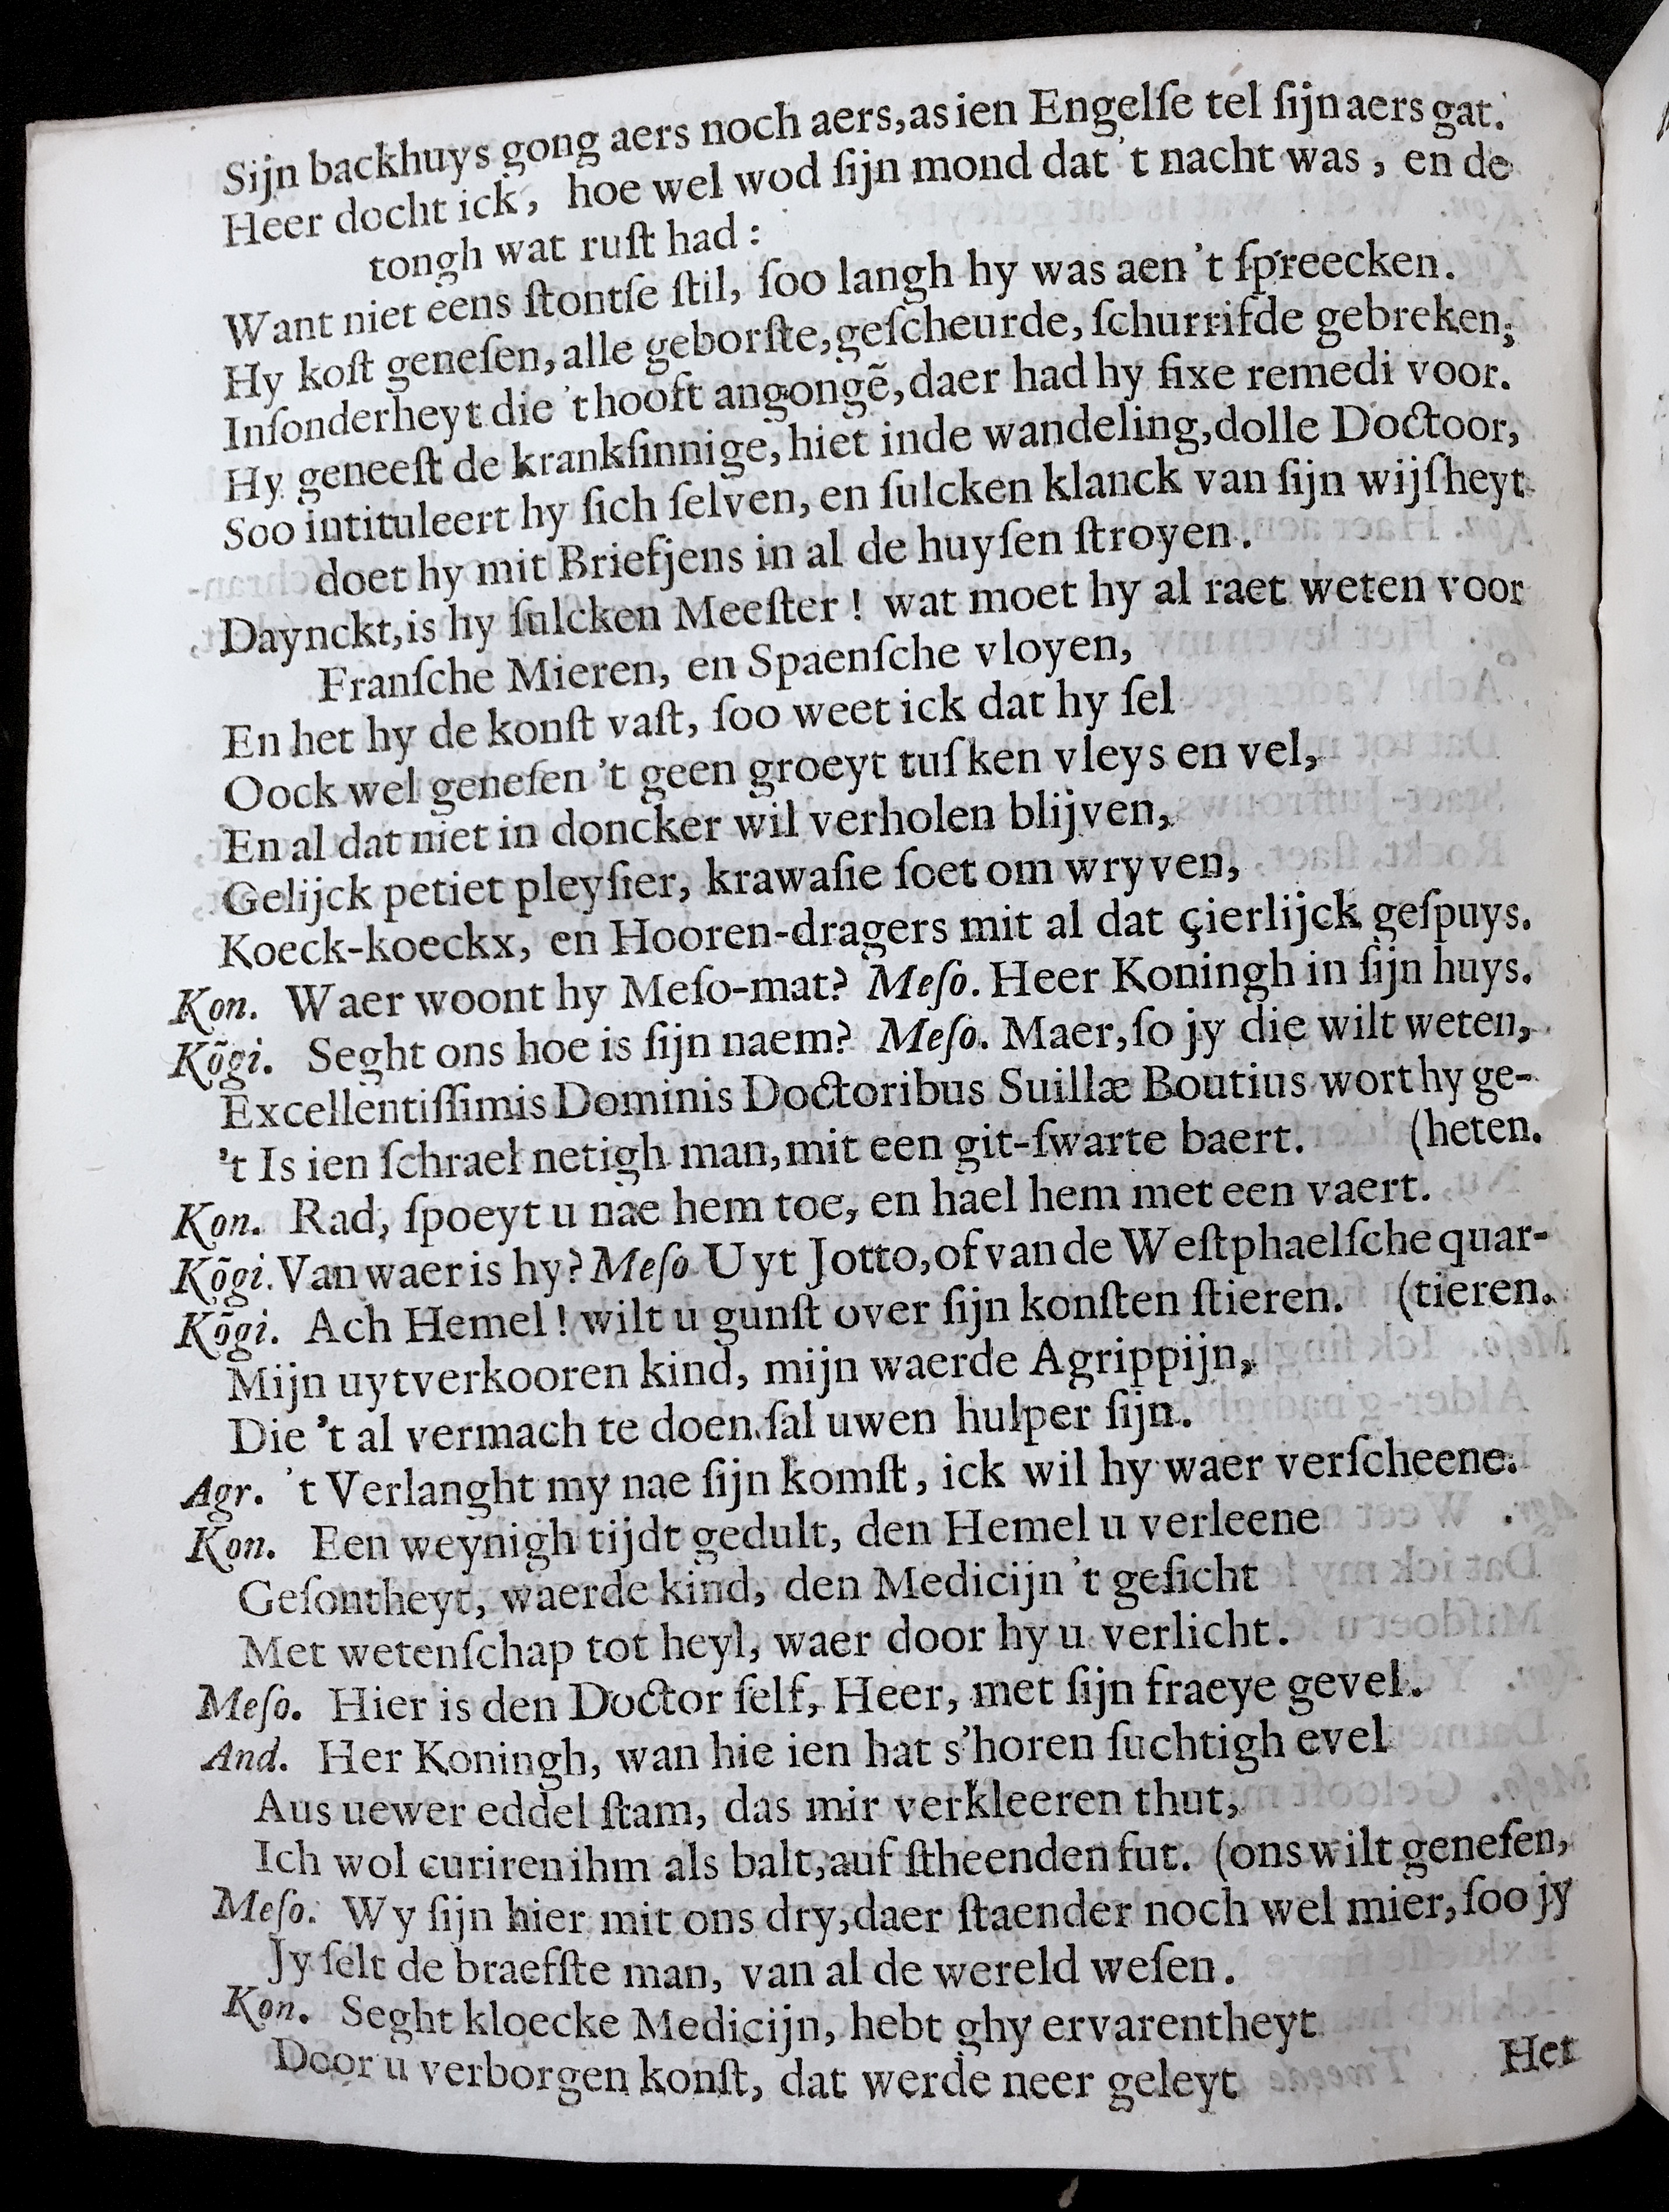 Sijn backhuys gong aers noch aers,as ien Engelſe tel ſijn aers gat.
Heer docht ick, hoe wel wod ſijn mond dat 't nacht was, en de
tongh wat ruſt had:
Want niet eens ſtontſe ſtil, ſoo langh hy was aen 't ſpreecken.
Hy koſt geneſen, alle geborſte, geſcheurde, ſchurrifde gebreken,
Inſonderheyt die 't hooft angongẽ, daer had hy fixe remedi voor.
Hy geneeſt de krankſinnige, hiet inde wandeling, dolle Doctoor,
Soo intituleert hy ſich ſelven, en ſulcken klanck van ſijn wijſheyt
doet hy mit Briefjens in al de huyſen ſtroyen.
Daynckt, is hy ſulcken Meeſter! wat moet hy al raet weten voor
Franſche Mieren, en Spaenſche vloyen,
En het hy de konſt vaſt, ſoo weet ick dat hy ſel
Oock wel geneſen 't geen groeyt tuſken vleys en vel,
En al dat niet in doncker wil verholen blijven,
Gelijck petiet pleyſier, krawaſie ſoet om wryven,
Koeck-koeckx, en Hooren-dragers mit al dat çierlijck geſpuys.
Kon. Waer woont hy Meſo-mat? Meſo. Heer Koningh in ſijn huys.
Kõgi. Seght ons hoe is ſijn naem? Meſo. Maer, ſo jy die wilt weten,
Excellentiſſimis Dominis Doctoribus Suillæ Boutius wort hy ge-
't Is ien ſchrael netigh man, mit een git-ſwarte baert. (heten.
Kon. Rad, ſpoeyt u nae hem toe, en hael hem met een vaert.
Kõgi. Van waer is hy? Meſo Uyt Jotto, of van de Weſtphaelſche quar-
Kõgi. Ach Hemel! wilt u gunſt over ſijn konſten ſtieren. (tieren.
Mijn uytverkooren kind, mijn waerde Agrippijn,
Die 't al vermach te doen, ſal uwen hulper ſijn.
Agr. 't Verlanght my nae ſijn komſt, ick wil hy waer verſcheene.
Kon. Een weynigh tijdt gedult, den Hemel u verleene
Geſontheyt, waerde kind, den Medicijn 't geſicht
Met wetenſchap tot heyl, waer door hy u verlicht.
Meſo. Hier is den Doctor ſelf, Heer, met ſijn fraeye gevel.
And. Her Koningh, wan hie ien hat s'horen ſuchtigh evel
Aus uewer eddel ſtam, das mir verkleeren thut,
Ich wol curiren ihm als balt, auf ſtheenden fut. (ons wilt geneſen,
Meſo. Wy ſijn hier mit ons dry, daer ſtaender noch wel mier, ſoo jy
Jy ſelt de braefſte man, van al de wereld weſen.
Kon. Seght kloecke Medicijn, hebt ghy ervarentheyt
Door u verborgen konſt, dat werde neer geleyt
Het